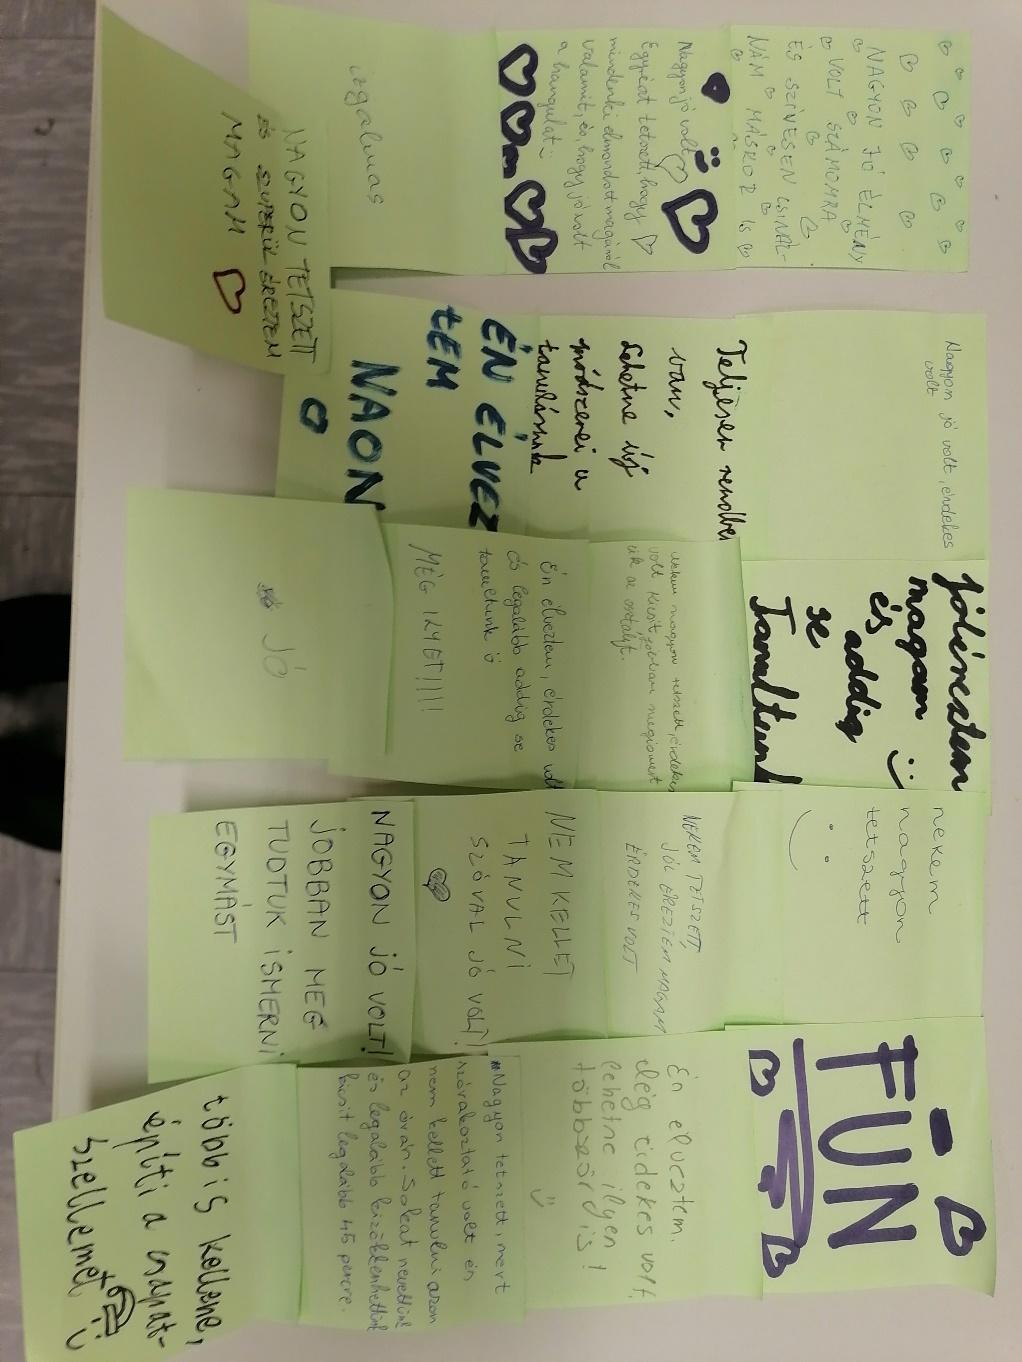 NAGYON JÓ ÉLMÉNY
VOLT SZÁMOMRA
ÉS SZÍVESEN CSINÁL-
NÁM MÁSKOR IS
Nagyon jó volt
Egyrészt tetszett, hogy
mindenki elmondott magáról
valamit, és, hogy jó volt
a hangulat
izgalmas
NAGYON TETSZETT
és SZUPERÜL ÉREZTEM
MAGAM
Nagyon jó volt, érdekes
volt
Teljesen rendben
van,
Lehetne új
módszerei a
tanulásnak
ÉN ÉLVEZ
TEM
NAON
jól éreztem
magam
és addig
se
Tanultunk
nekem nagyon tetszett, érdekes
volt kicsit jobban megismert
ük az osztályt.
Én élveztem, érdekes volt
és legalább addig se
tanultunk
MÉG ILYET!!!!
JÓ
nekem
nagyon
tetszett
NEKEM TETSZETT,
JÓL ÉREZTEM MAGAM
ÉRDEKES VOLT
NEM KELLET
TANULNI
SZÓVAL JÓ VOLT!
NAGYON JÓ VOLT!
JOBBAN MEG
TUDTUK ISMERNI
EGYMÁST
FUN
Én élveztem.
elég érdekes volt,
lehetne ilyen
többször is!
Nagyon tetszett, mert
szórakoztató volt és
nem kellett tanulni azon
az órán. Sokat nevettünk
és legalább kizökkenhettünk
kicsit legalább 45 percre.
több is kellene,
építi a csapat-
szellemet